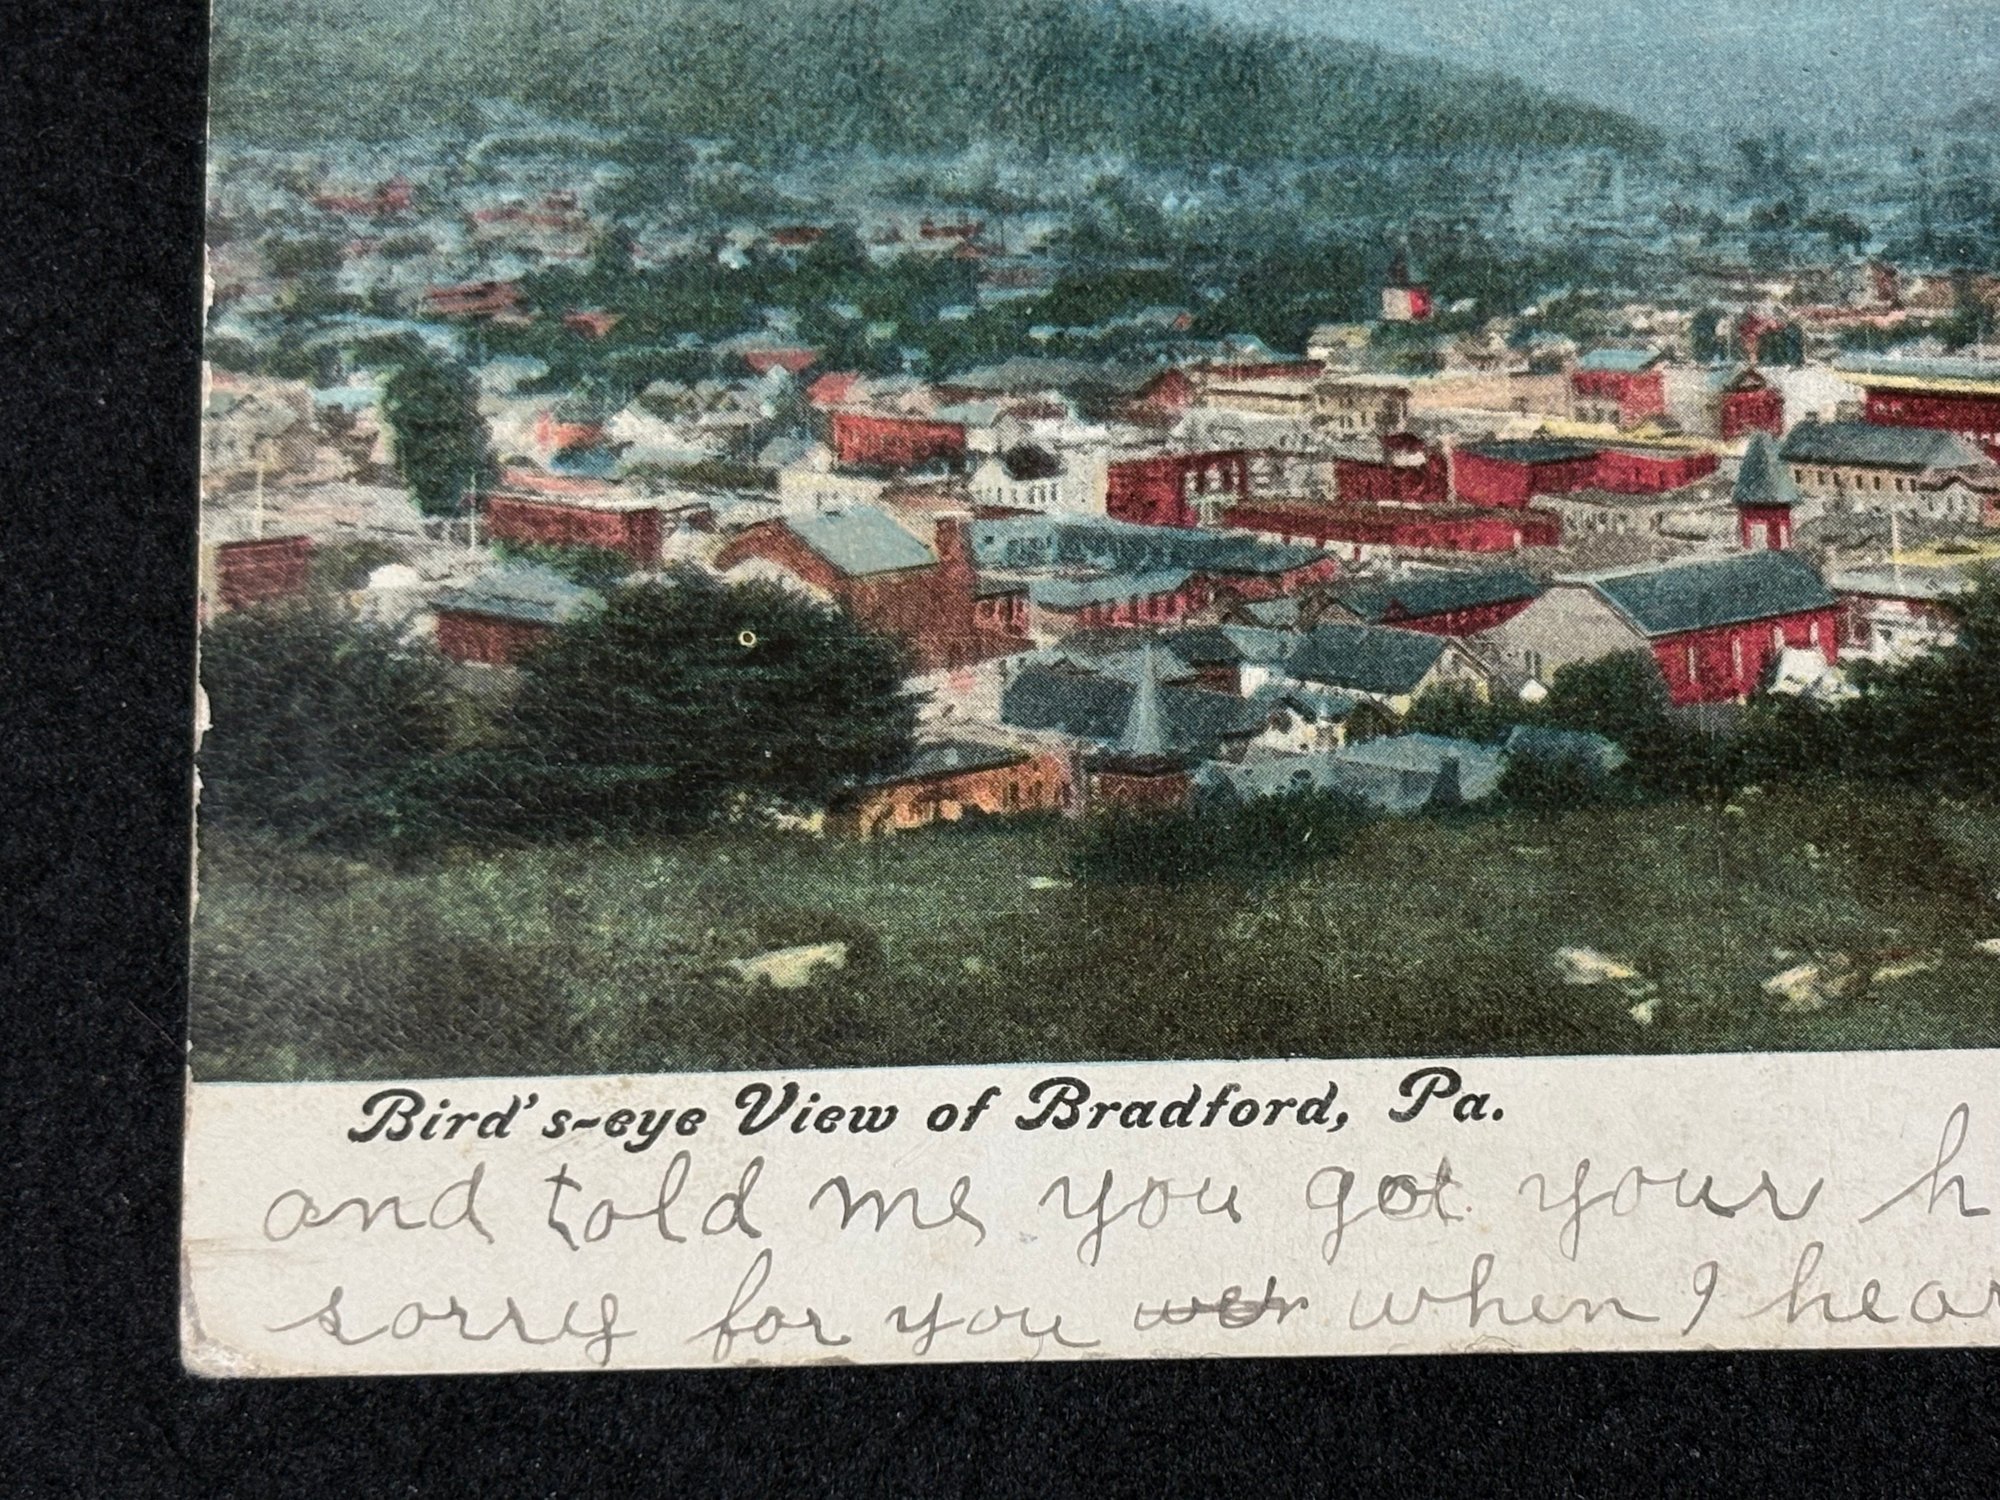 Bird's-eye View of Bradford, Pa.
and told me you got your h
sorry for you when I hear